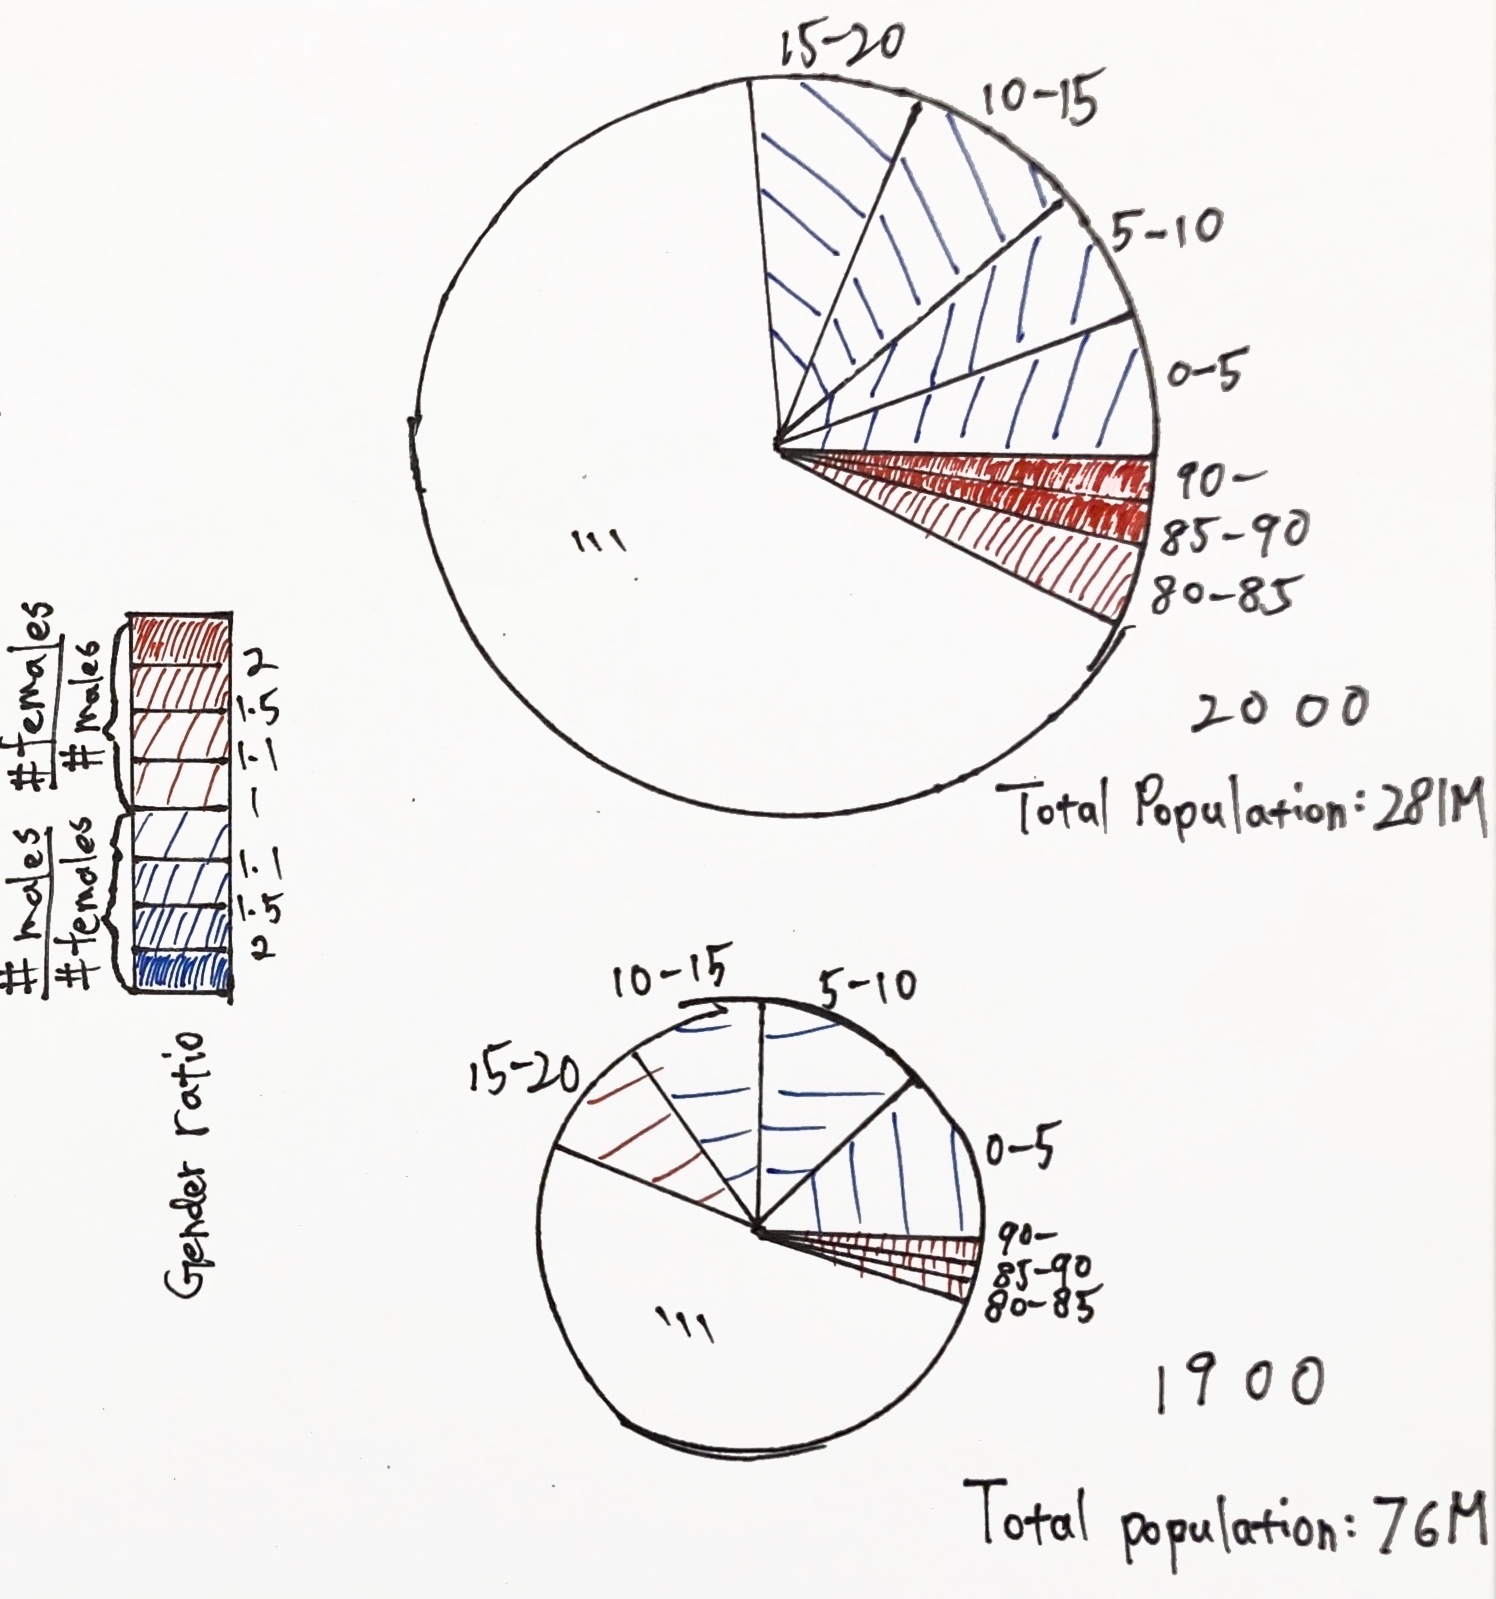 15-20
10-15
5-10
0-5
90-
85-90
80-85
2000
Total Population: 281M
# females
# males
# males
# females
2
1.5
1.1
1
1.1
1.5
2
Gender ratio
10-15
5-10
15-20
0-5
90-
85-90
80-85
1900
Total population: 76M